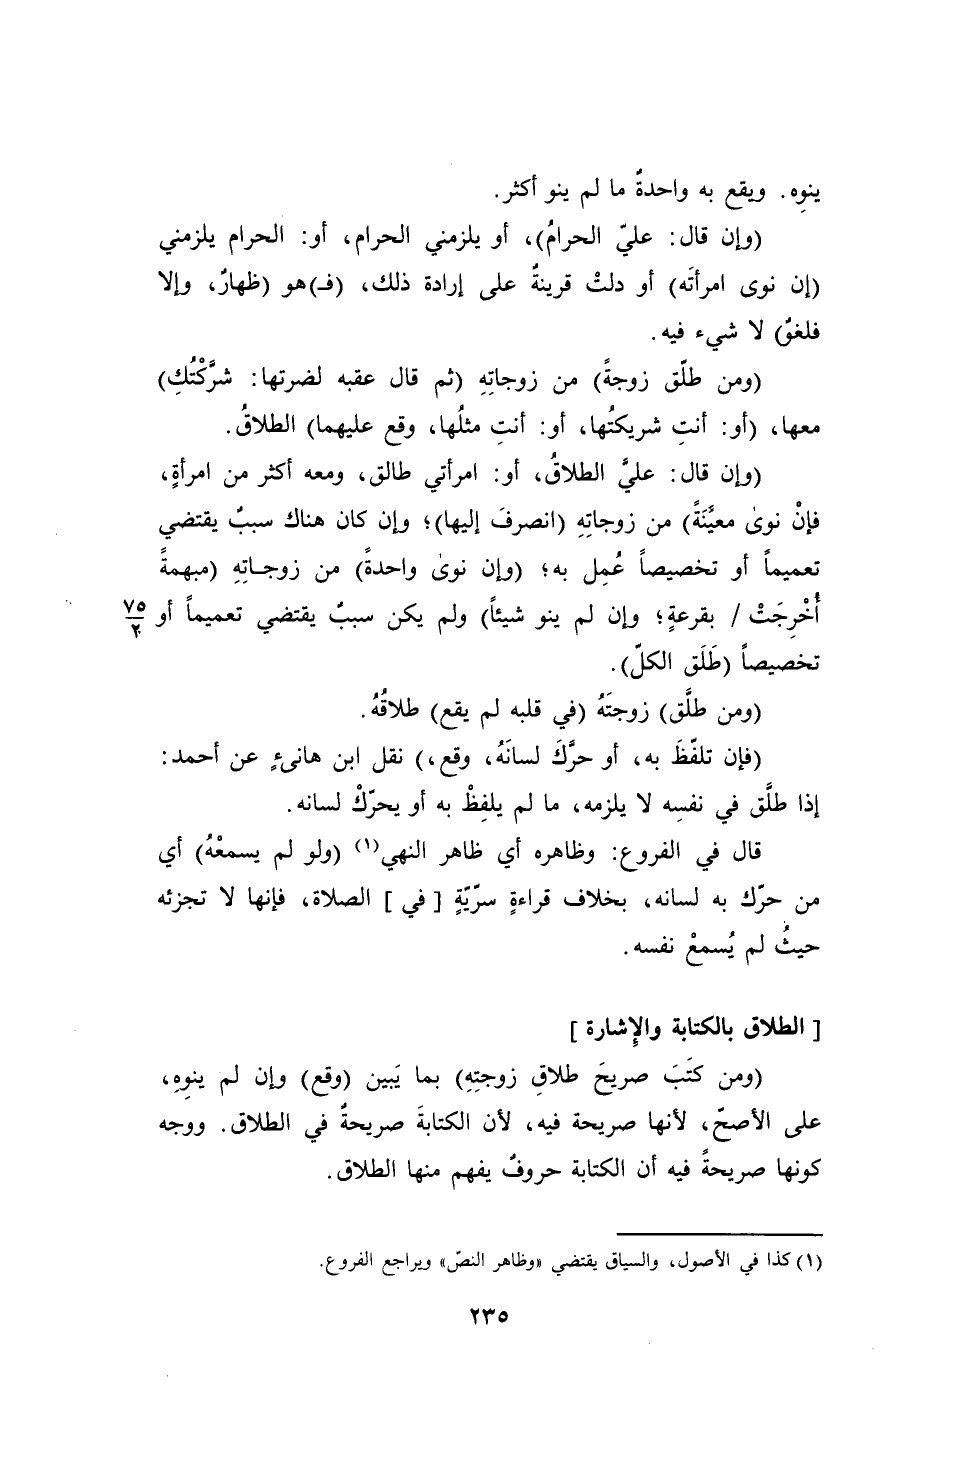 ينوِه. ويقع به واحدةٌ ما لم ينو أكثر.
(وإن قال: عليّ الحرامُ)، أو يلزمني الحرام، أو: الحرام يلزمني
(إن نوى امرأتَه) أو دلتْ قرينةٌ على إرادة ذلك، (فـ)هو (ظهارٌ، وإلا
فلغوٌ) لا شيء فيه.
(ومن طلّق زوجةً) من زوجاتِهِ (ثم قال عقبه لضرتها: شرَّكْتُكِ)
معها، (أو: أنتِ شريكتُها، أو: أنتِ مثلُها، وقع عليهما) الطلاقُ.
(وإن قال: عليَّ الطلاقُ، أو: امرأتي طالق، ومعه أكثر من امرأةٍ،
فإنْ نوىٰ معيَّنَةً) من زوجاتِهِ (انصرفَ إليها)؛ وإن كان هناك سببٌ يقتضي
تعميماً أو تخصيصاً عُمِل به؛ (وإن نوىٰ واحدةً) من زوجـاتِهِ (مبهمةً
أُخْرِجَتْ / بقرعةٍ؛ وإن لم ينوِ شيئاً) ولم يكن سببٌ يقتضي تعميماً أو ٧٥/٢
تخصيصاً (طَلَق الكلّ).
(ومن طلَّق) زوجتَهُ (في قلبه لم يقع) طلاقُهُ.
(فإن تلفّظَ به، أو حرَّكَ لسانَهُ، وقع،) نقل ابن هانىءٍ عن أحمد:
إذا طلَّق في نفسِه لا يلزمه، ما لم يلفِظْ به أو يحرّكْ لسانه.
قال في الفروع: وظاهره أي ظاهر النهي(١) (ولو لم يسمعْهُ) أي
من حرّك به لسانه، بخلاف قراءةٍ سرّيّةٍ [في] الصلاة، فإنها لا تجزئه
حيثُ لم يُسمعْ نفسه.
[الطلاق بالكتابة والإشارة]
(ومن كتَبَ صريحَ طلاقِ زوجتِهِ) بما يَبين (وقع) وإن لم ينوِهِ،
على الأصحّ، لأنها صريحة فيه، لأن الكتابةَ صريحةٌ في الطلاق. ووجه
كونها صريحةً فيه أن الكتابة حروفٌ يفهم منها الطلاق.
(١) كذا في الأصول، والسياق يقتضي «وظاهر النصّ» ويراجع الفروع.
٢٣٥